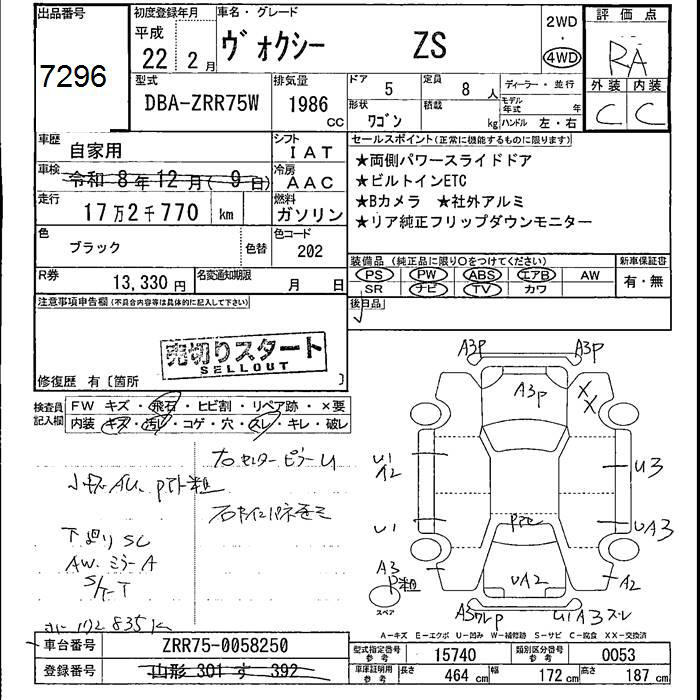 出品番号
7296
初度登録年月
平成
22年 2月
車名・グレード
ヴォクシー ZS
2WD
4WD
評価点
RA
外装 内装
C C
型式
DBA-ZRR75W
排気量
1986 CC
ドア 5
定員 8人
形状 ワゴン
積載 kg
ディーラー・並行
モデル年式 年
ハンドル 左・右
車歴 自家用
シフト IAT
車検 令和 8年12月(9日)
冷房 AAC
走行 17万2千770 km
燃料 ガソリン
色 ブラック
色替
色コード 202
R券 13,330円
名変通知期限 月 日
セールスポイント(正常に機能するものに限ります)
★両側パワースライドドア
★ビルトインETC
★Bカメラ ★社外アルミ
★リア純正フリップダウンモニター
装備品(純正品に限り〇をつけてください)
PS PW ABS エアB AW
SR ナビ TV カワ
新車保証書
有・無
後日品
注意事項申告欄(不具合内容等は具体的に記入して下さい)
売切りスタート
SELLOUT
修復歴 有〔箇所 〕
検査員記入欄
FW キズ・飛石・ヒビ割・リペア跡・×要
内装 キズ・汚れ・コゲ・穴・スレ・キレ・破レ
下廻りSC
AW.ミラーA
A3P A3P
A3P
XX
U1
A2
U3
U1
UA3
A3
P粗
UA2
A2
スペア
U1A3スレ
A-キズ E-エクボ U-凹み W-補修跡 S-サビ C-腐食 XX-交換済
車台番号 ZRR75-0058250
登録番号 山形 301 す 392
型式指定番号 参考 15740
類別区分番号 参考 0053
車庫証明用 参考 長さ 464 cm 幅 172 cm 高さ 187 cm